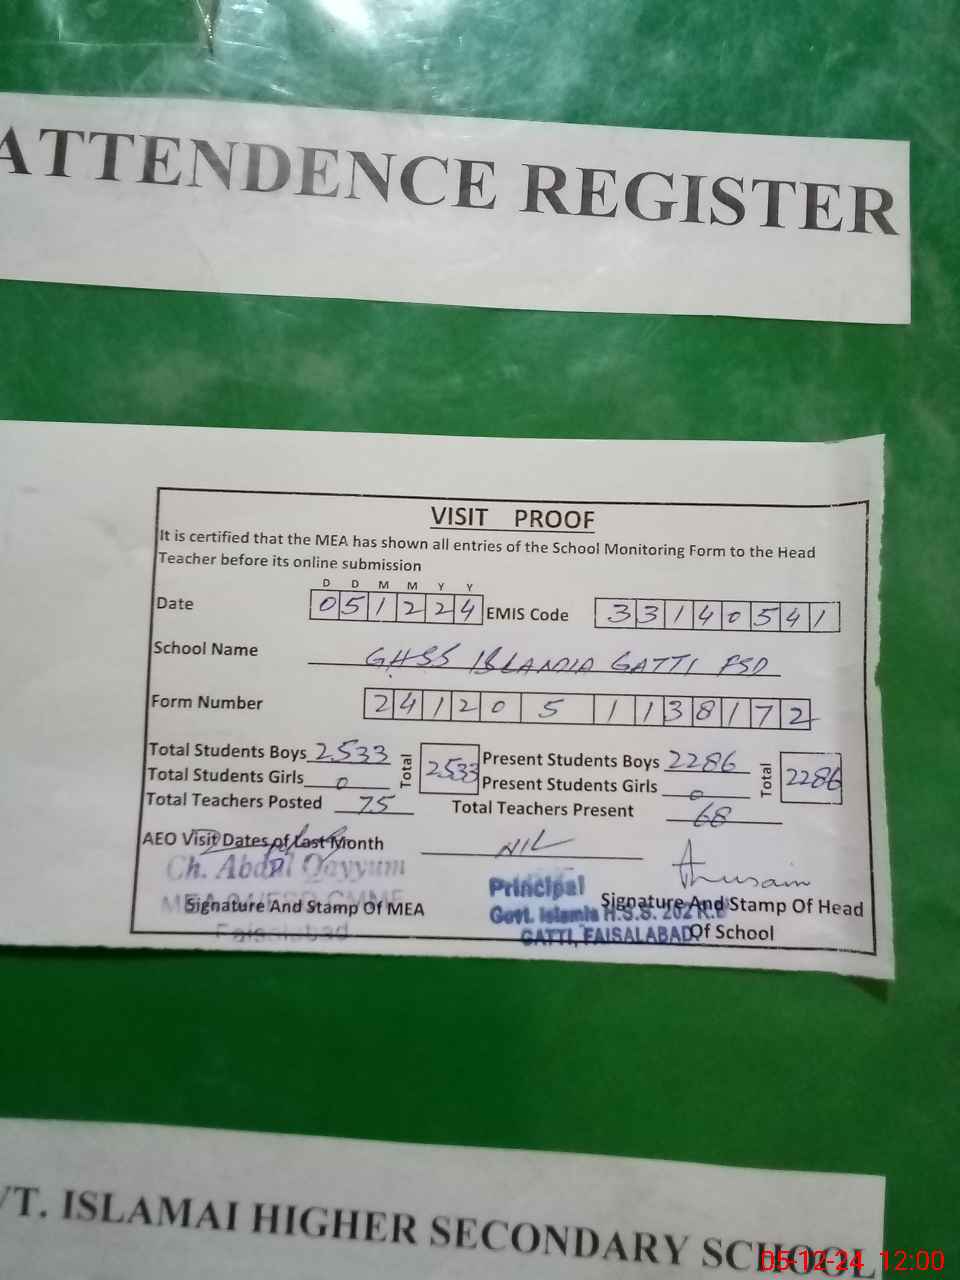 ATTENDENCE REGISTER
VISIT PROOF
It is certified that the MEA has shown all entries of the School Monitoring Form to the Head
Teacher before its online submission
D D M M Y Y
Date 051224 EMIS Code 33140541
School Name GHSS ISLAMIA GATTI FSD
Form Number 2412051138172
Total Students Boys 2533 Total 2533 Present Students Boys 2286 Total 2286
Total Students Girls 0 Present Students Girls 0
Total Teachers Posted 75 Total Teachers Present 68
AEO Visit Dates of Last Month NIL
Ch. Abdul Qayyum
Principal
Signature And Stamp Of MEA
Govt. Islamia H.S.S. 202 R.B
Signature And Stamp Of Head
Faisalabad
GATTI, FAISALABAD
Of School
VT. ISLAMAI HIGHER SECONDARY SCHOOL
05-12-24 12:00